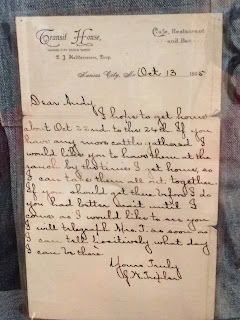 Transit House,
Cafe, Restaurant
and Bar
Prop.
Kansas City, Mo. Oct 13
Dear Andy
I hope to get home
about Oct 22nd to the 24th If you
have any more cattle gathered I
would like you to have them at the
ranch by the time I get home, so
I can take them all out together.
If you should get there before I do
you had better wait until I
come as I would like to see you
I will telegraph Mrs. T. as soon as
I can tell positively what day
I can be there
Yours Truly